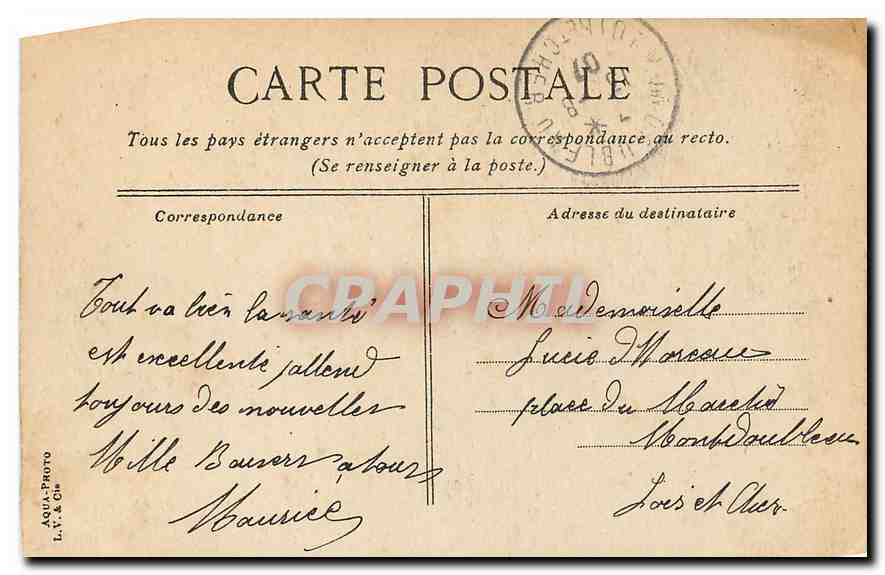 CARTE POSTALE
Tous les pays étrangers n'acceptent pas la correspondance au recto.
(Se renseigner à la poste.)
Correspondance
Tout va bien la santé
est excellente jattend
toujours des nouvelles
Mille Baisers a tous
Maurice
Adresse du destinataire
Mademoiselle
Lucie Moreau
place du Marché
Montdoubleau
Loir et Cher
AQUA-PHOTO
L. V. & Cie
CRAPHIL